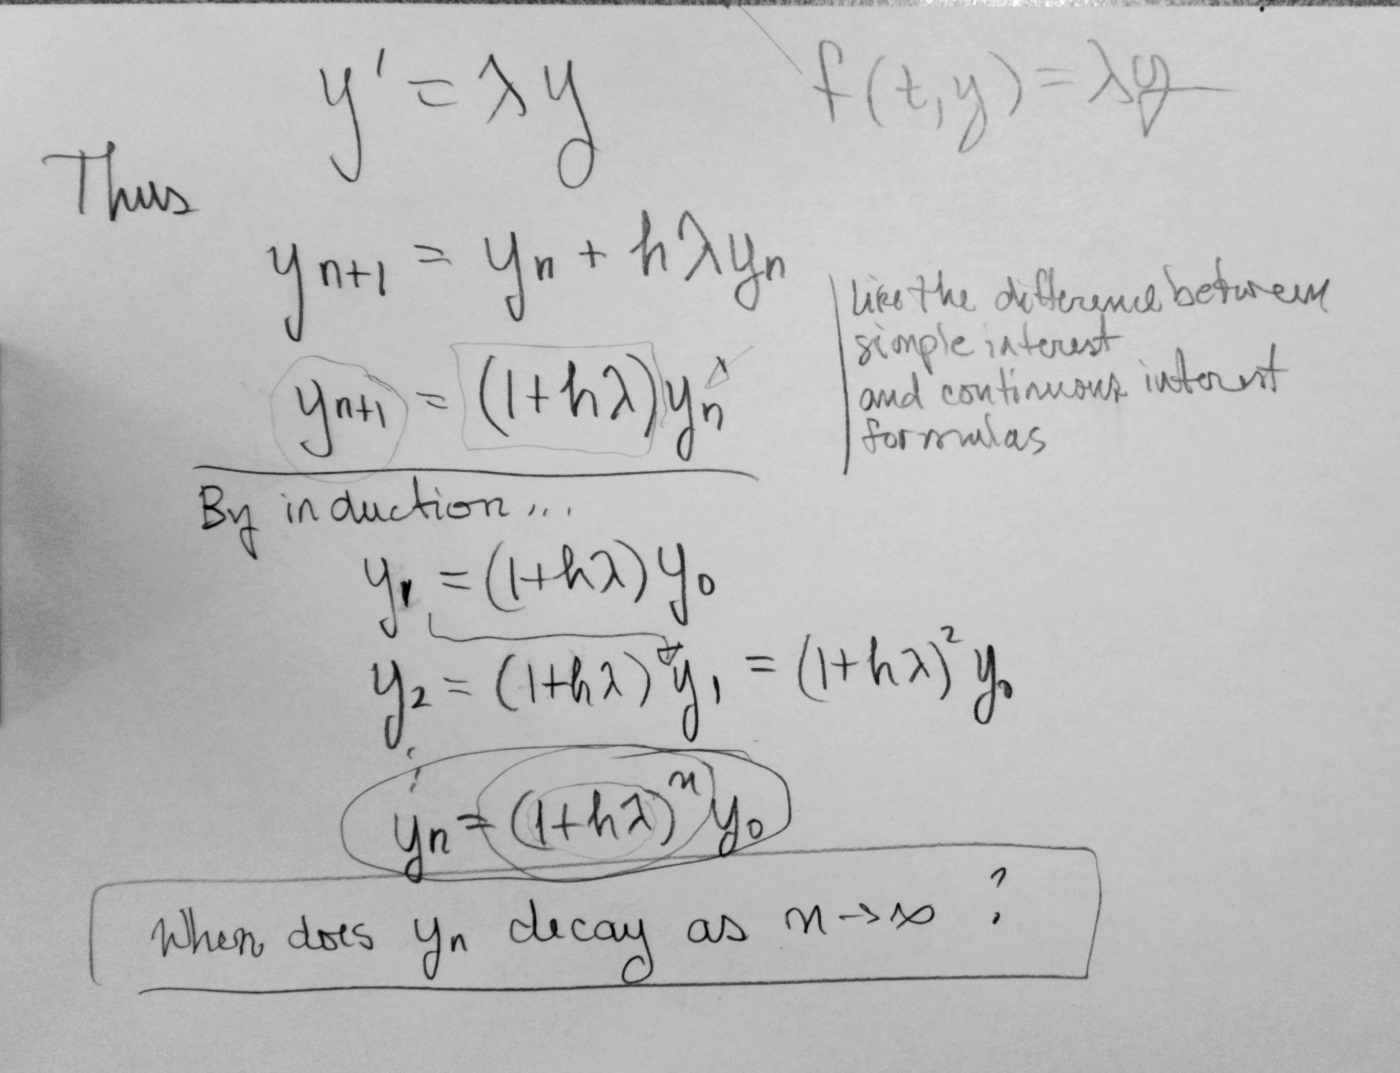 y' = λy
f(t,y) = λy
Thus
yₙ₊₁ = yₙ + hλyₙ
yₙ₊₁ = (1+hλ)yₙ
like the difference between
simple interest
and continuous interest
formulas
By induction...
y₁ = (1+hλ)y₀
y₂ = (1+hλ)y₁ = (1+hλ)²y₀
⋮
yₙ = (1+hλ)ⁿy₀
When does yₙ decay as n→∞ ?